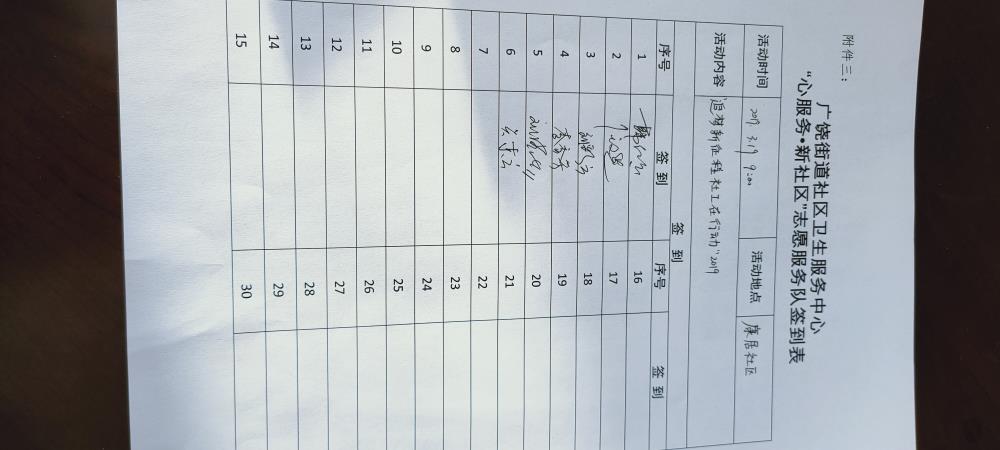 附件三：
广饶街道社区卫生服务中心
“心服务·新社区”志愿服务队签到表
活动时间 2019 3.19 9:00 活动地点 康居社区
活动内容 追梦新征程 社工在行动”2019
签 到
序号 签 到 序号 签 到
1 16
2 17
3 18
4 19
5 20
6 21
7 22
8 23
9 24
10 25
11 26
12 27
13 28
14 29
15 30